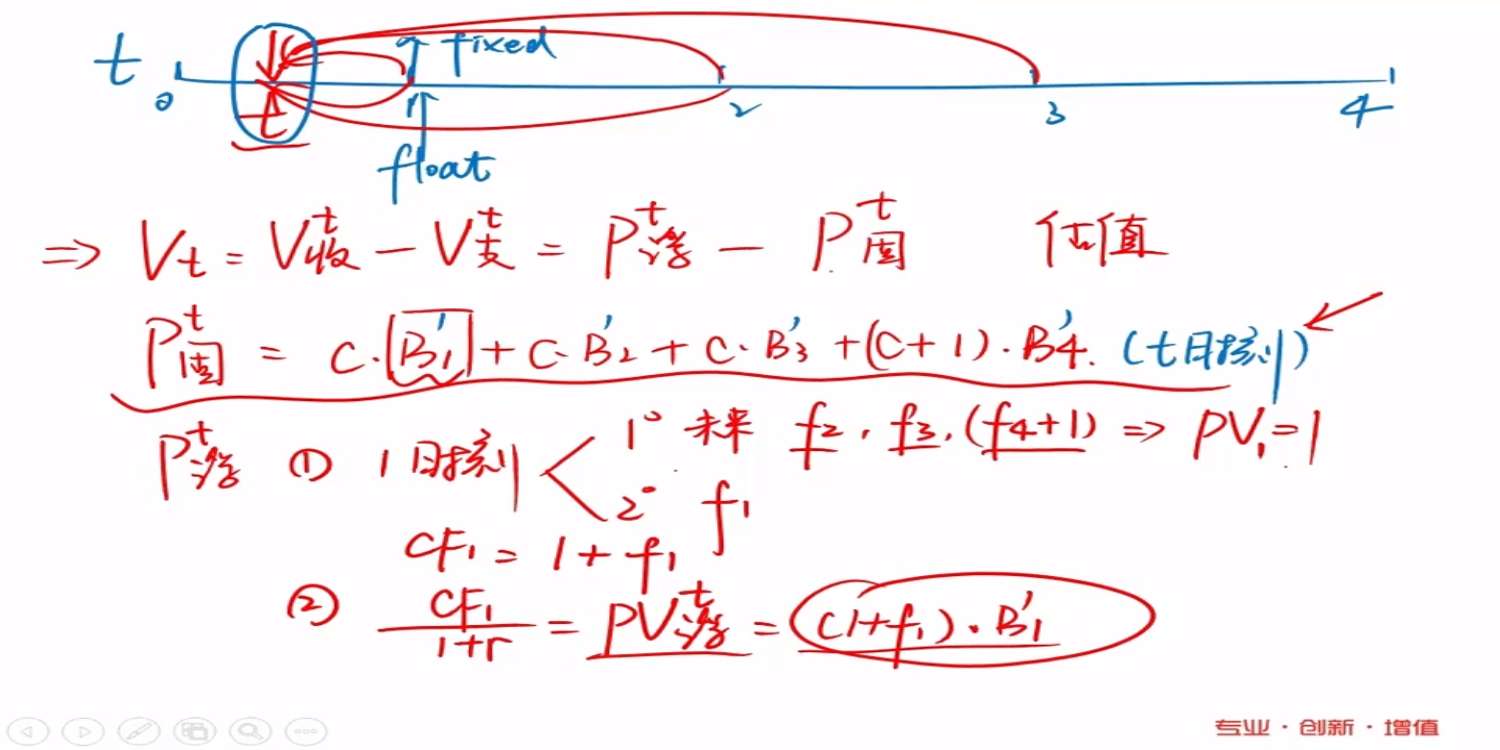 t 0 t 1 fixed 2 3 4
float
⇒ Vt = V收^t − V支^t = P浮^t − P固^t 估值
P固^t = C·B1' + C·B2' + C·B3' + (C+1)·B4'. (t时刻)
P浮^t ① 1时刻 < 1° 未来 f2, f3, (f4+1) ⇒ PV1=1
2° f1
CF1 = 1+f1
② CF1/1+r = PV浮^t = (1+f1)·B1'
专业·创新·增值